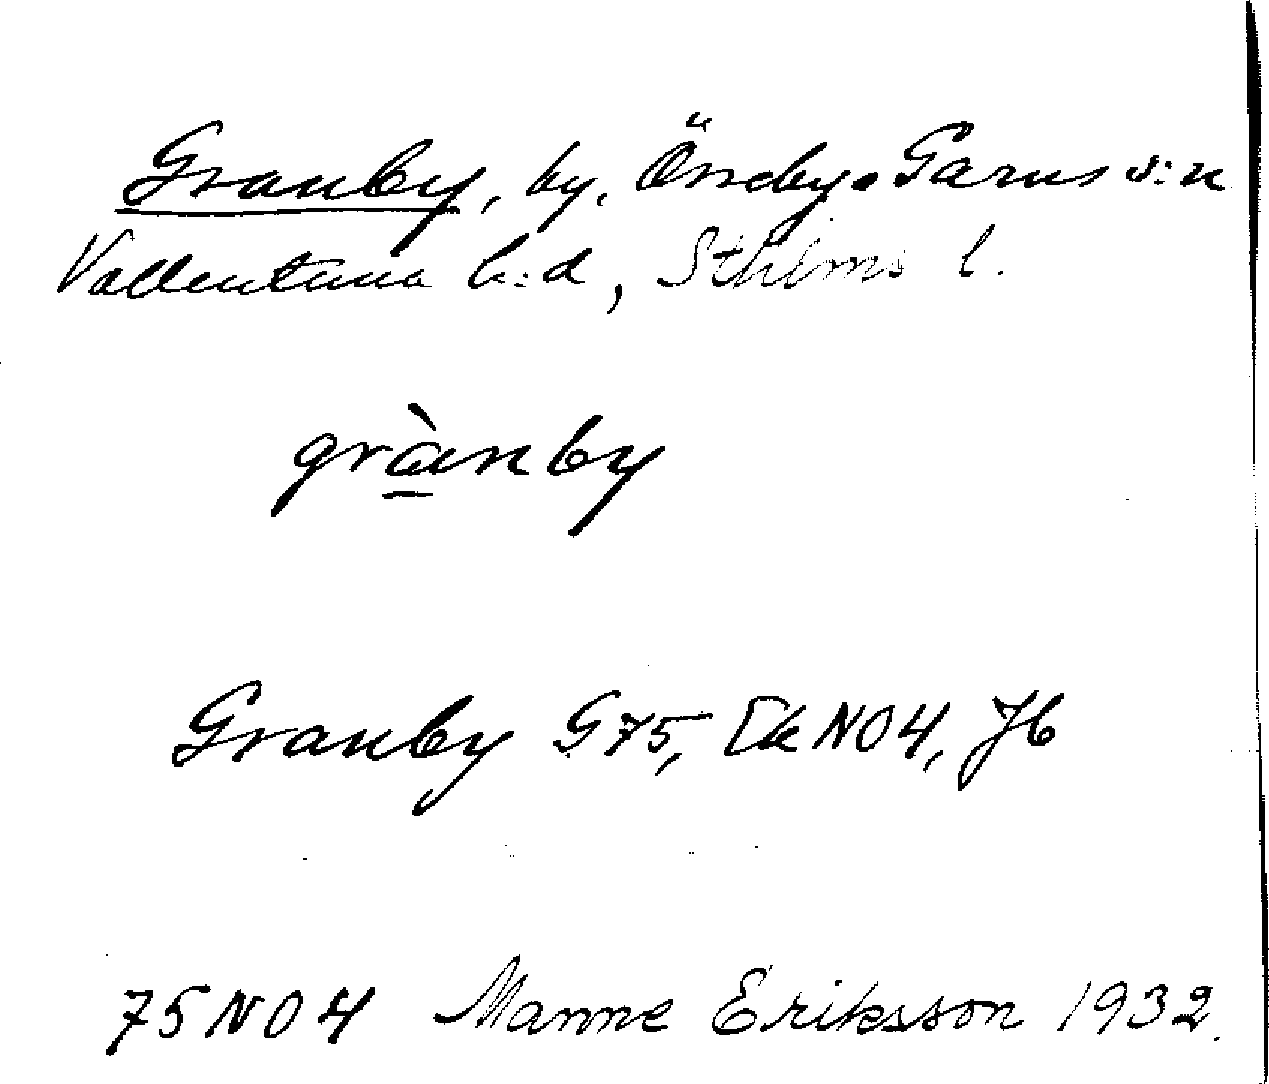 Granby, by, Össeby-Garns s:n
Vallentuna h:d, Sthlms l.
grànby
Granby G75, Ek NO4, Jb
75NO4 Manne Eriksson 1932.